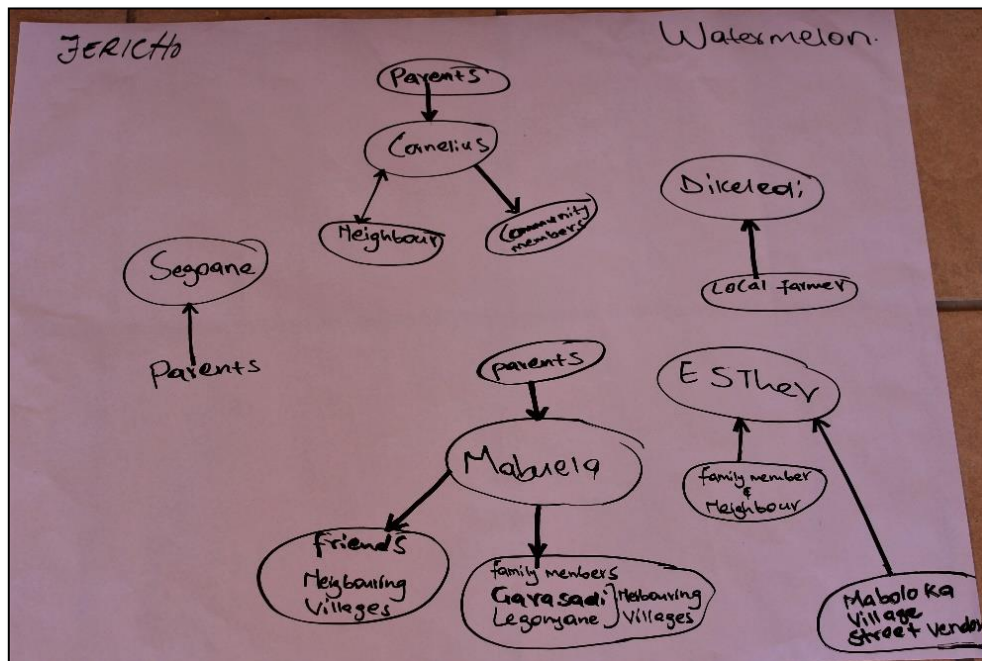 JERICHO
Watermelon.
Parents
Cornelius
Neighbour
Community
members
Dikeledi
Local farmer
Segoane
Parents
parents
Mabuela
friends
Neigbouring
Villages
family members
Garasadi
Legonyane
Neibouring
Villages
ESTher
family member
&
Neighbour
Maboloka
Village
Street Vendor